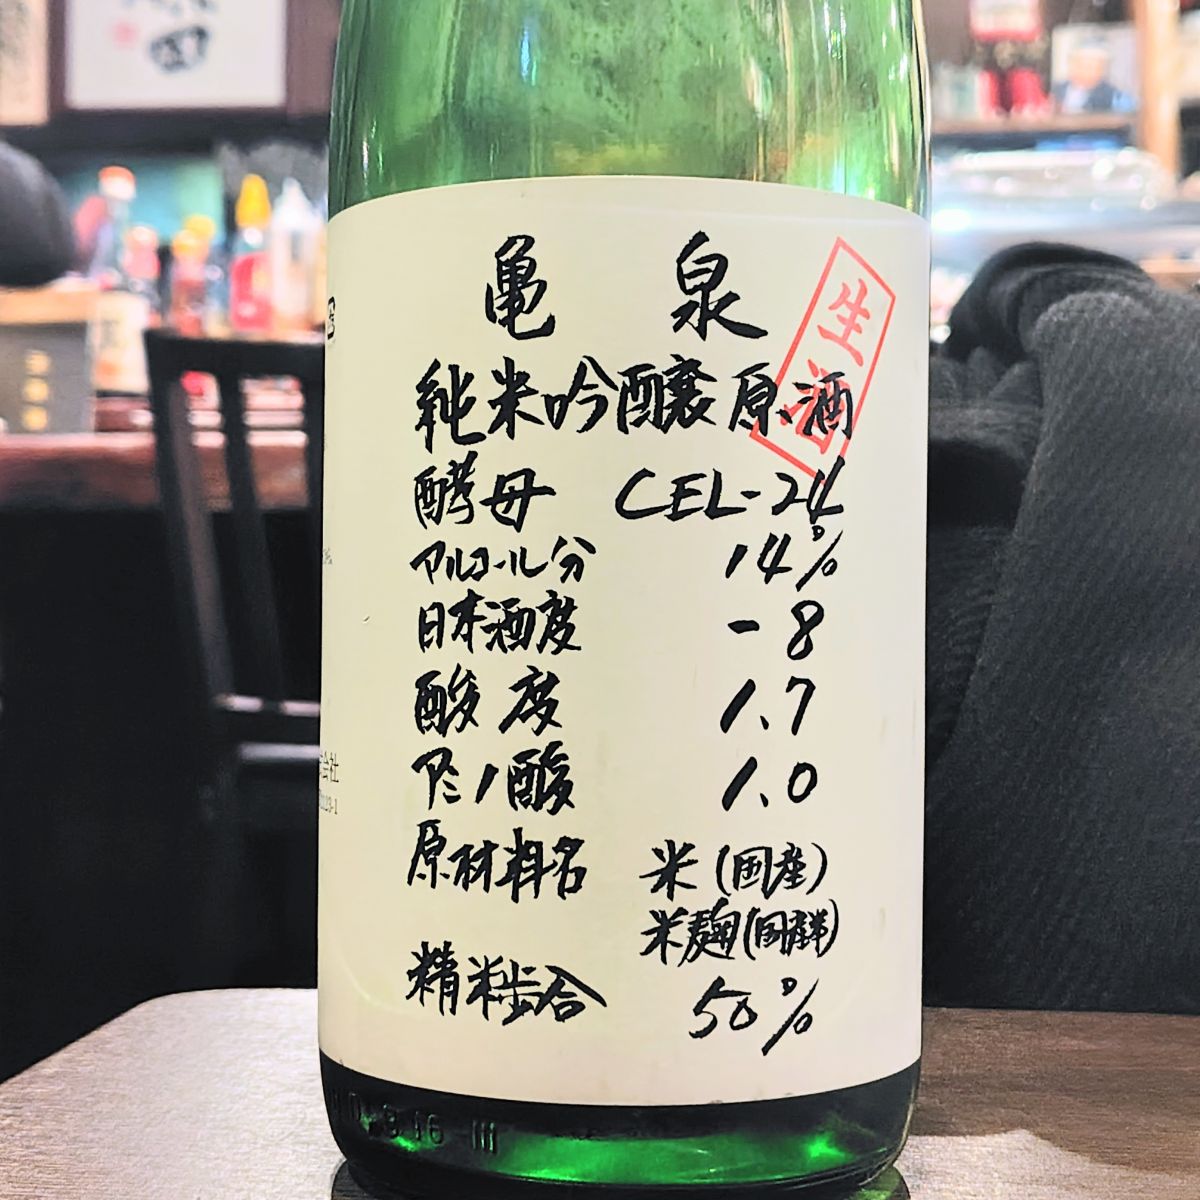 亀泉
生酒
純米吟醸原酒
酵母 CEL-24
アルコール分 14%
日本酒度 -8
酸度 1.7
アミノ酸 1.0
原材料名 米(国産)
米麹(国産米)
精米歩合 50%
会社